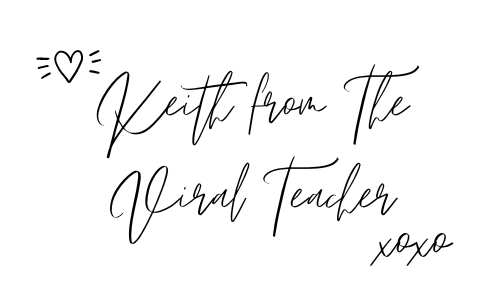 Keith from The
Viral Teacher
xoxo